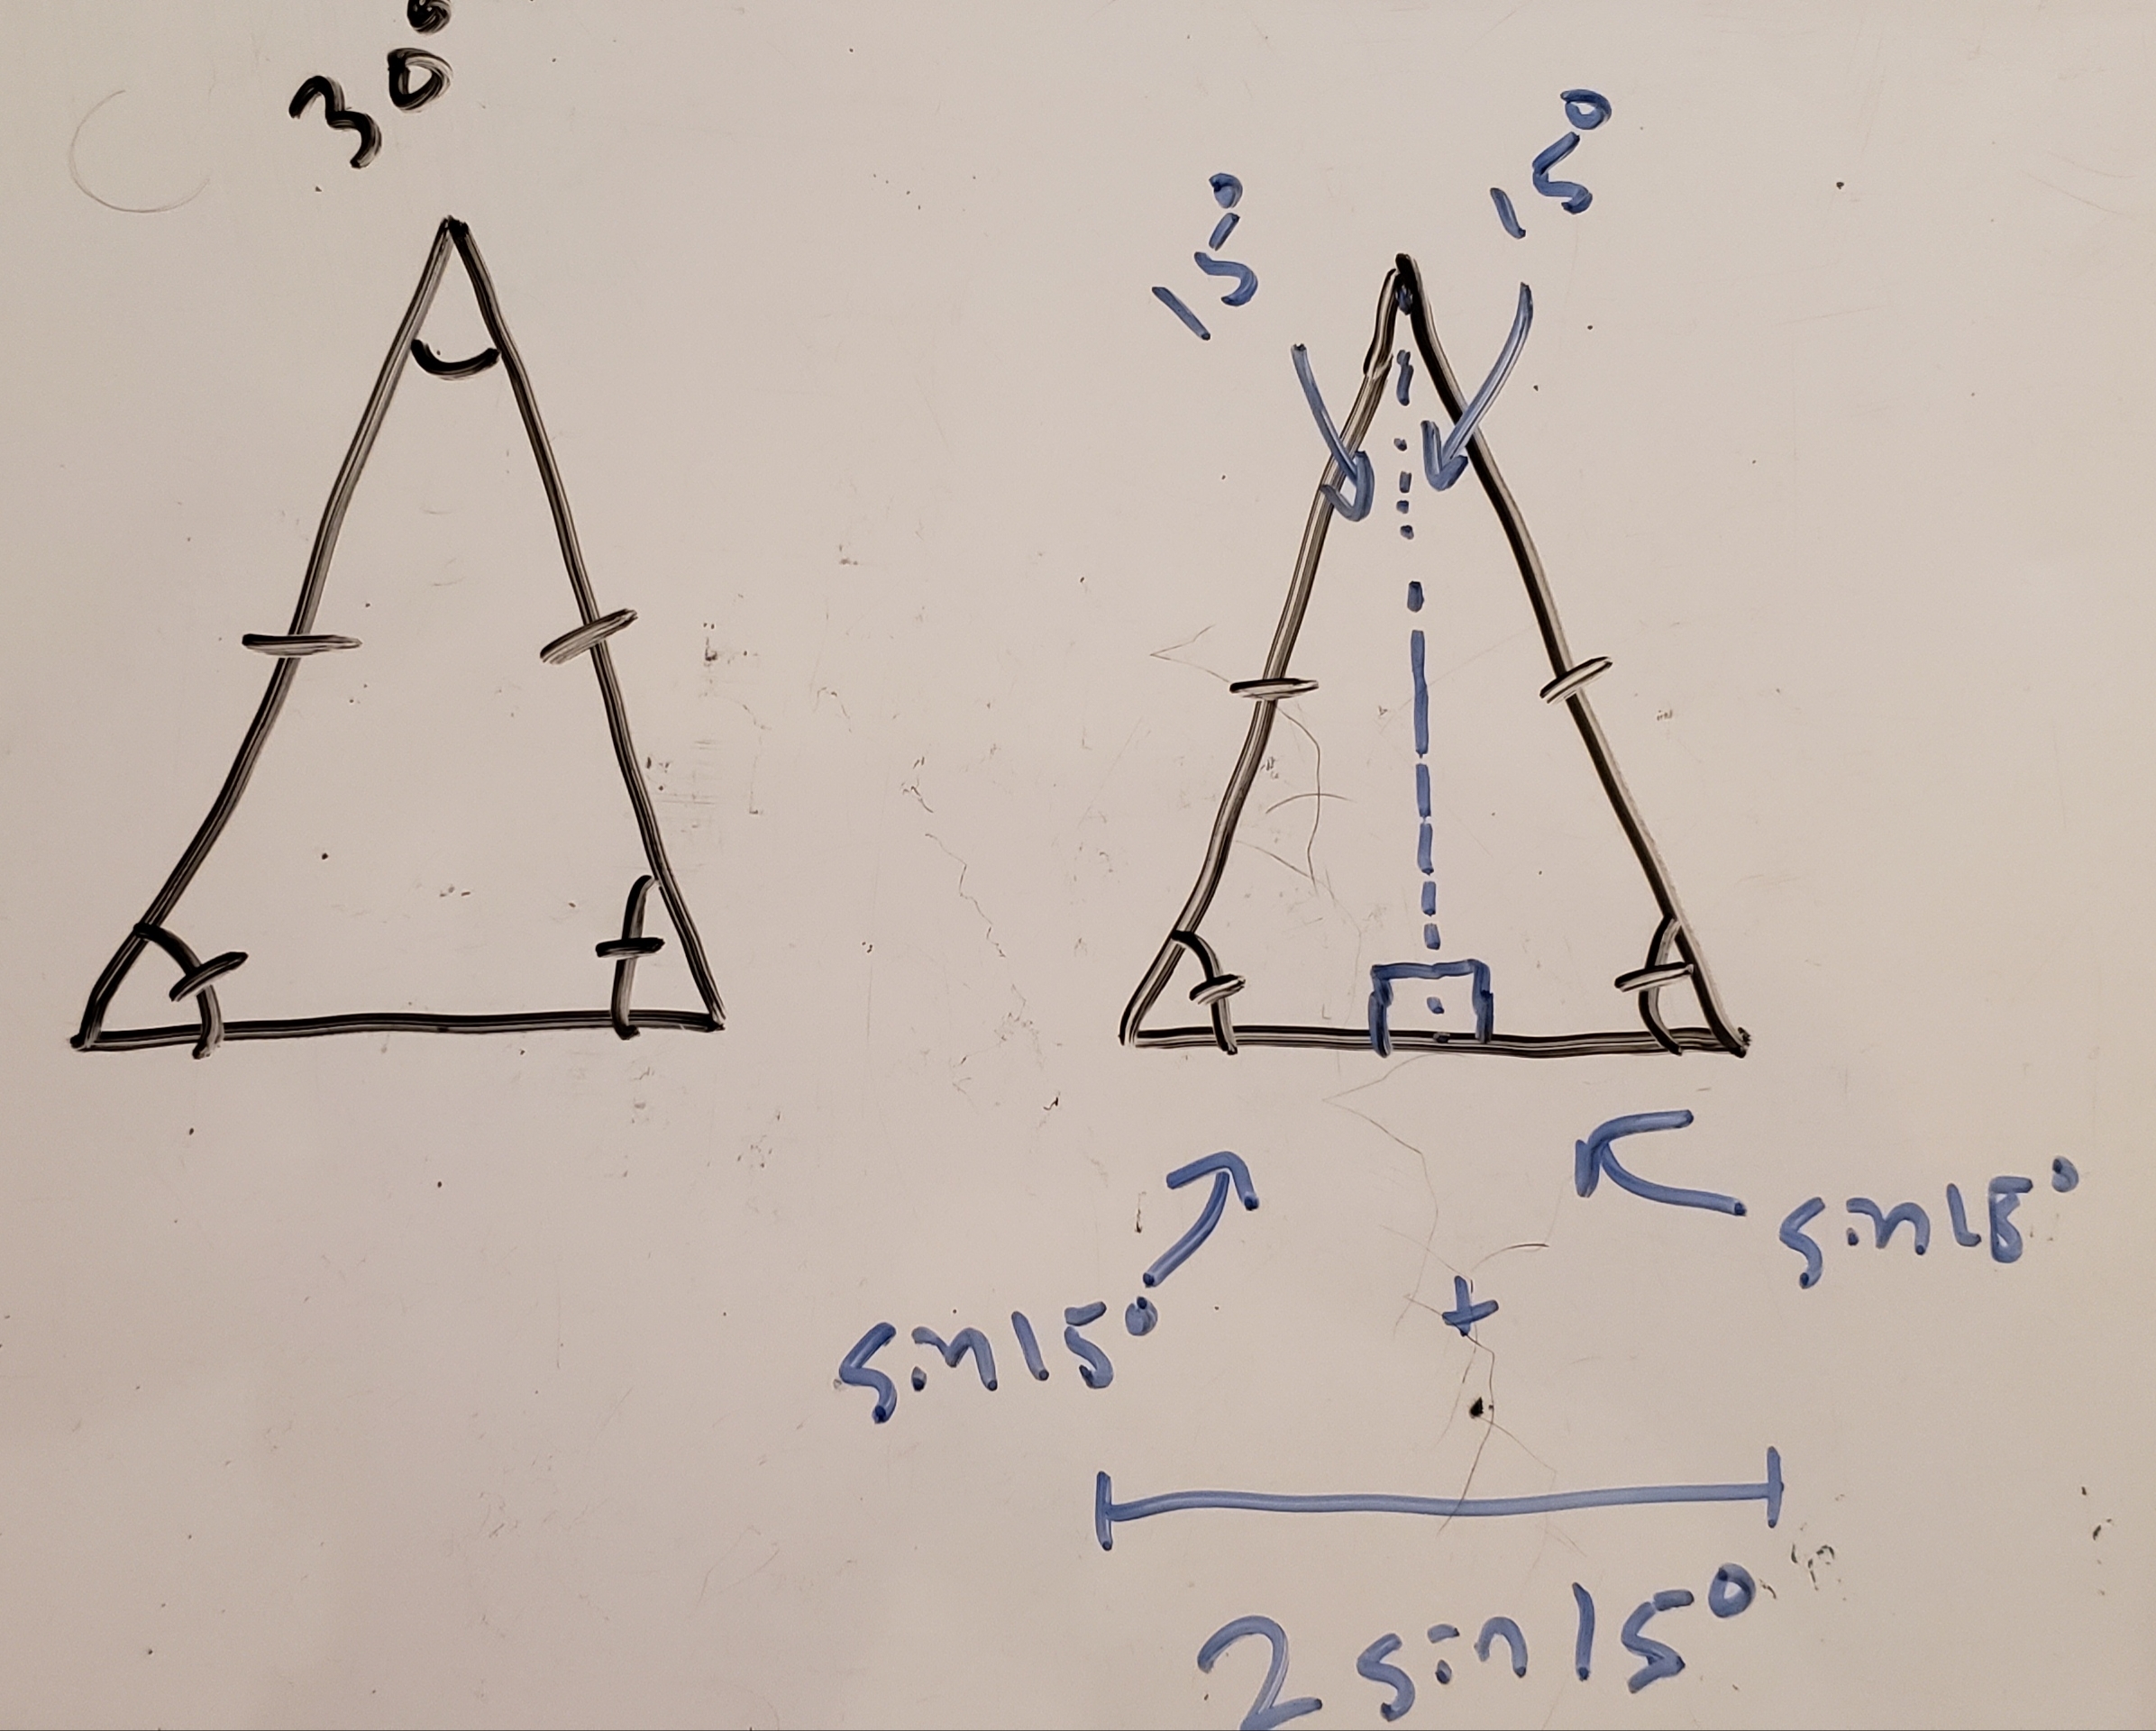 30°
15°
15°
sin15°
sin15°
+
2 sin15°